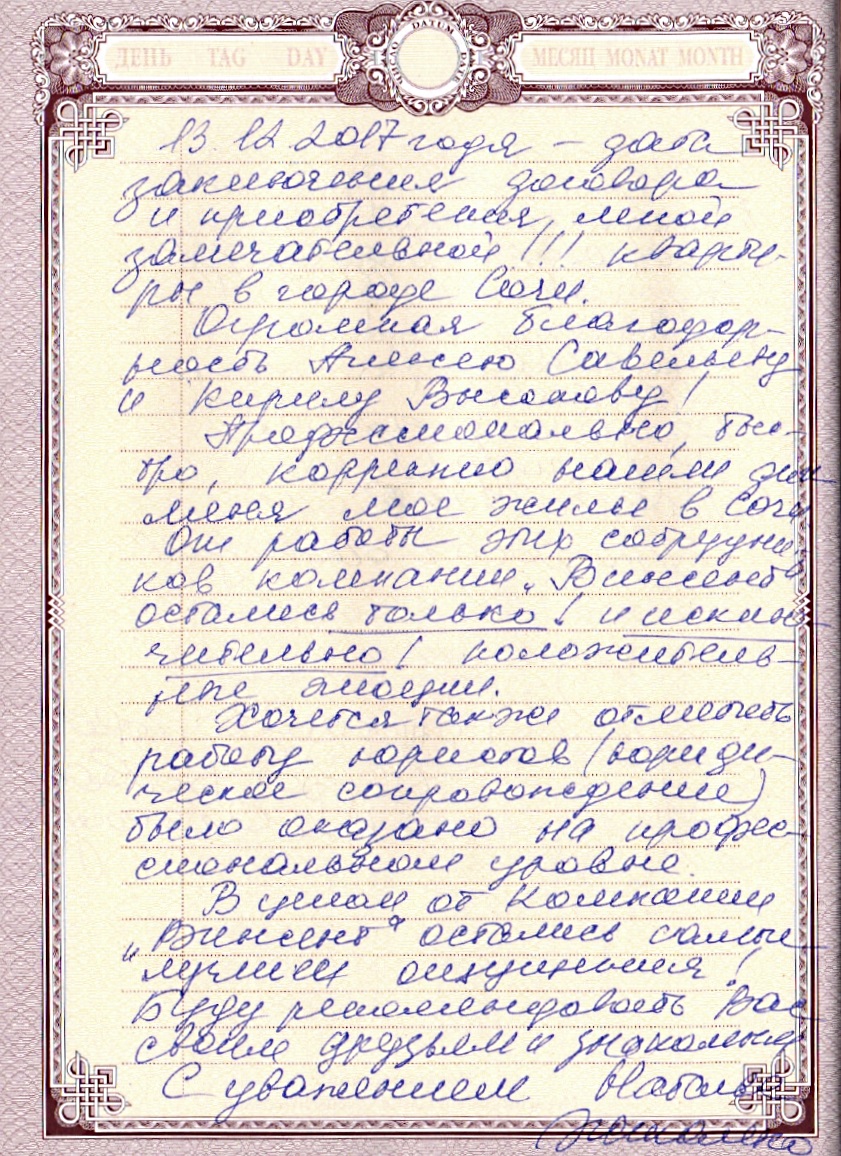 ДЕНЬ TAG DAY DATUM МЕСЯЦ MONAT MONTH
13.12.2017 года – дата
заключения договора
и приобретения, мной
замечательной!!! кварти-
ры в городе Сочи.
Огромная благодар-
ность Алексею Савельеву
и Кирилу Высокову!
Професионально, быс-
тро, корректно нашли для
меня мое жилье в Сочи
От работы этих сотрудни-
ков компании „Винсент“
остались только! и исклю-
чительно! положитель-
ные эмоции.
Хочется также отметить
работу юристов (юриди-
ческое сопровождение)
было оказано на профес-
сиональном уровне.
В целом от компании
„Винсент“ остались самые
лучшие ощущения!
Буду рекомендовать Вас
своим друзьям и знакомым
С уважением Наталья